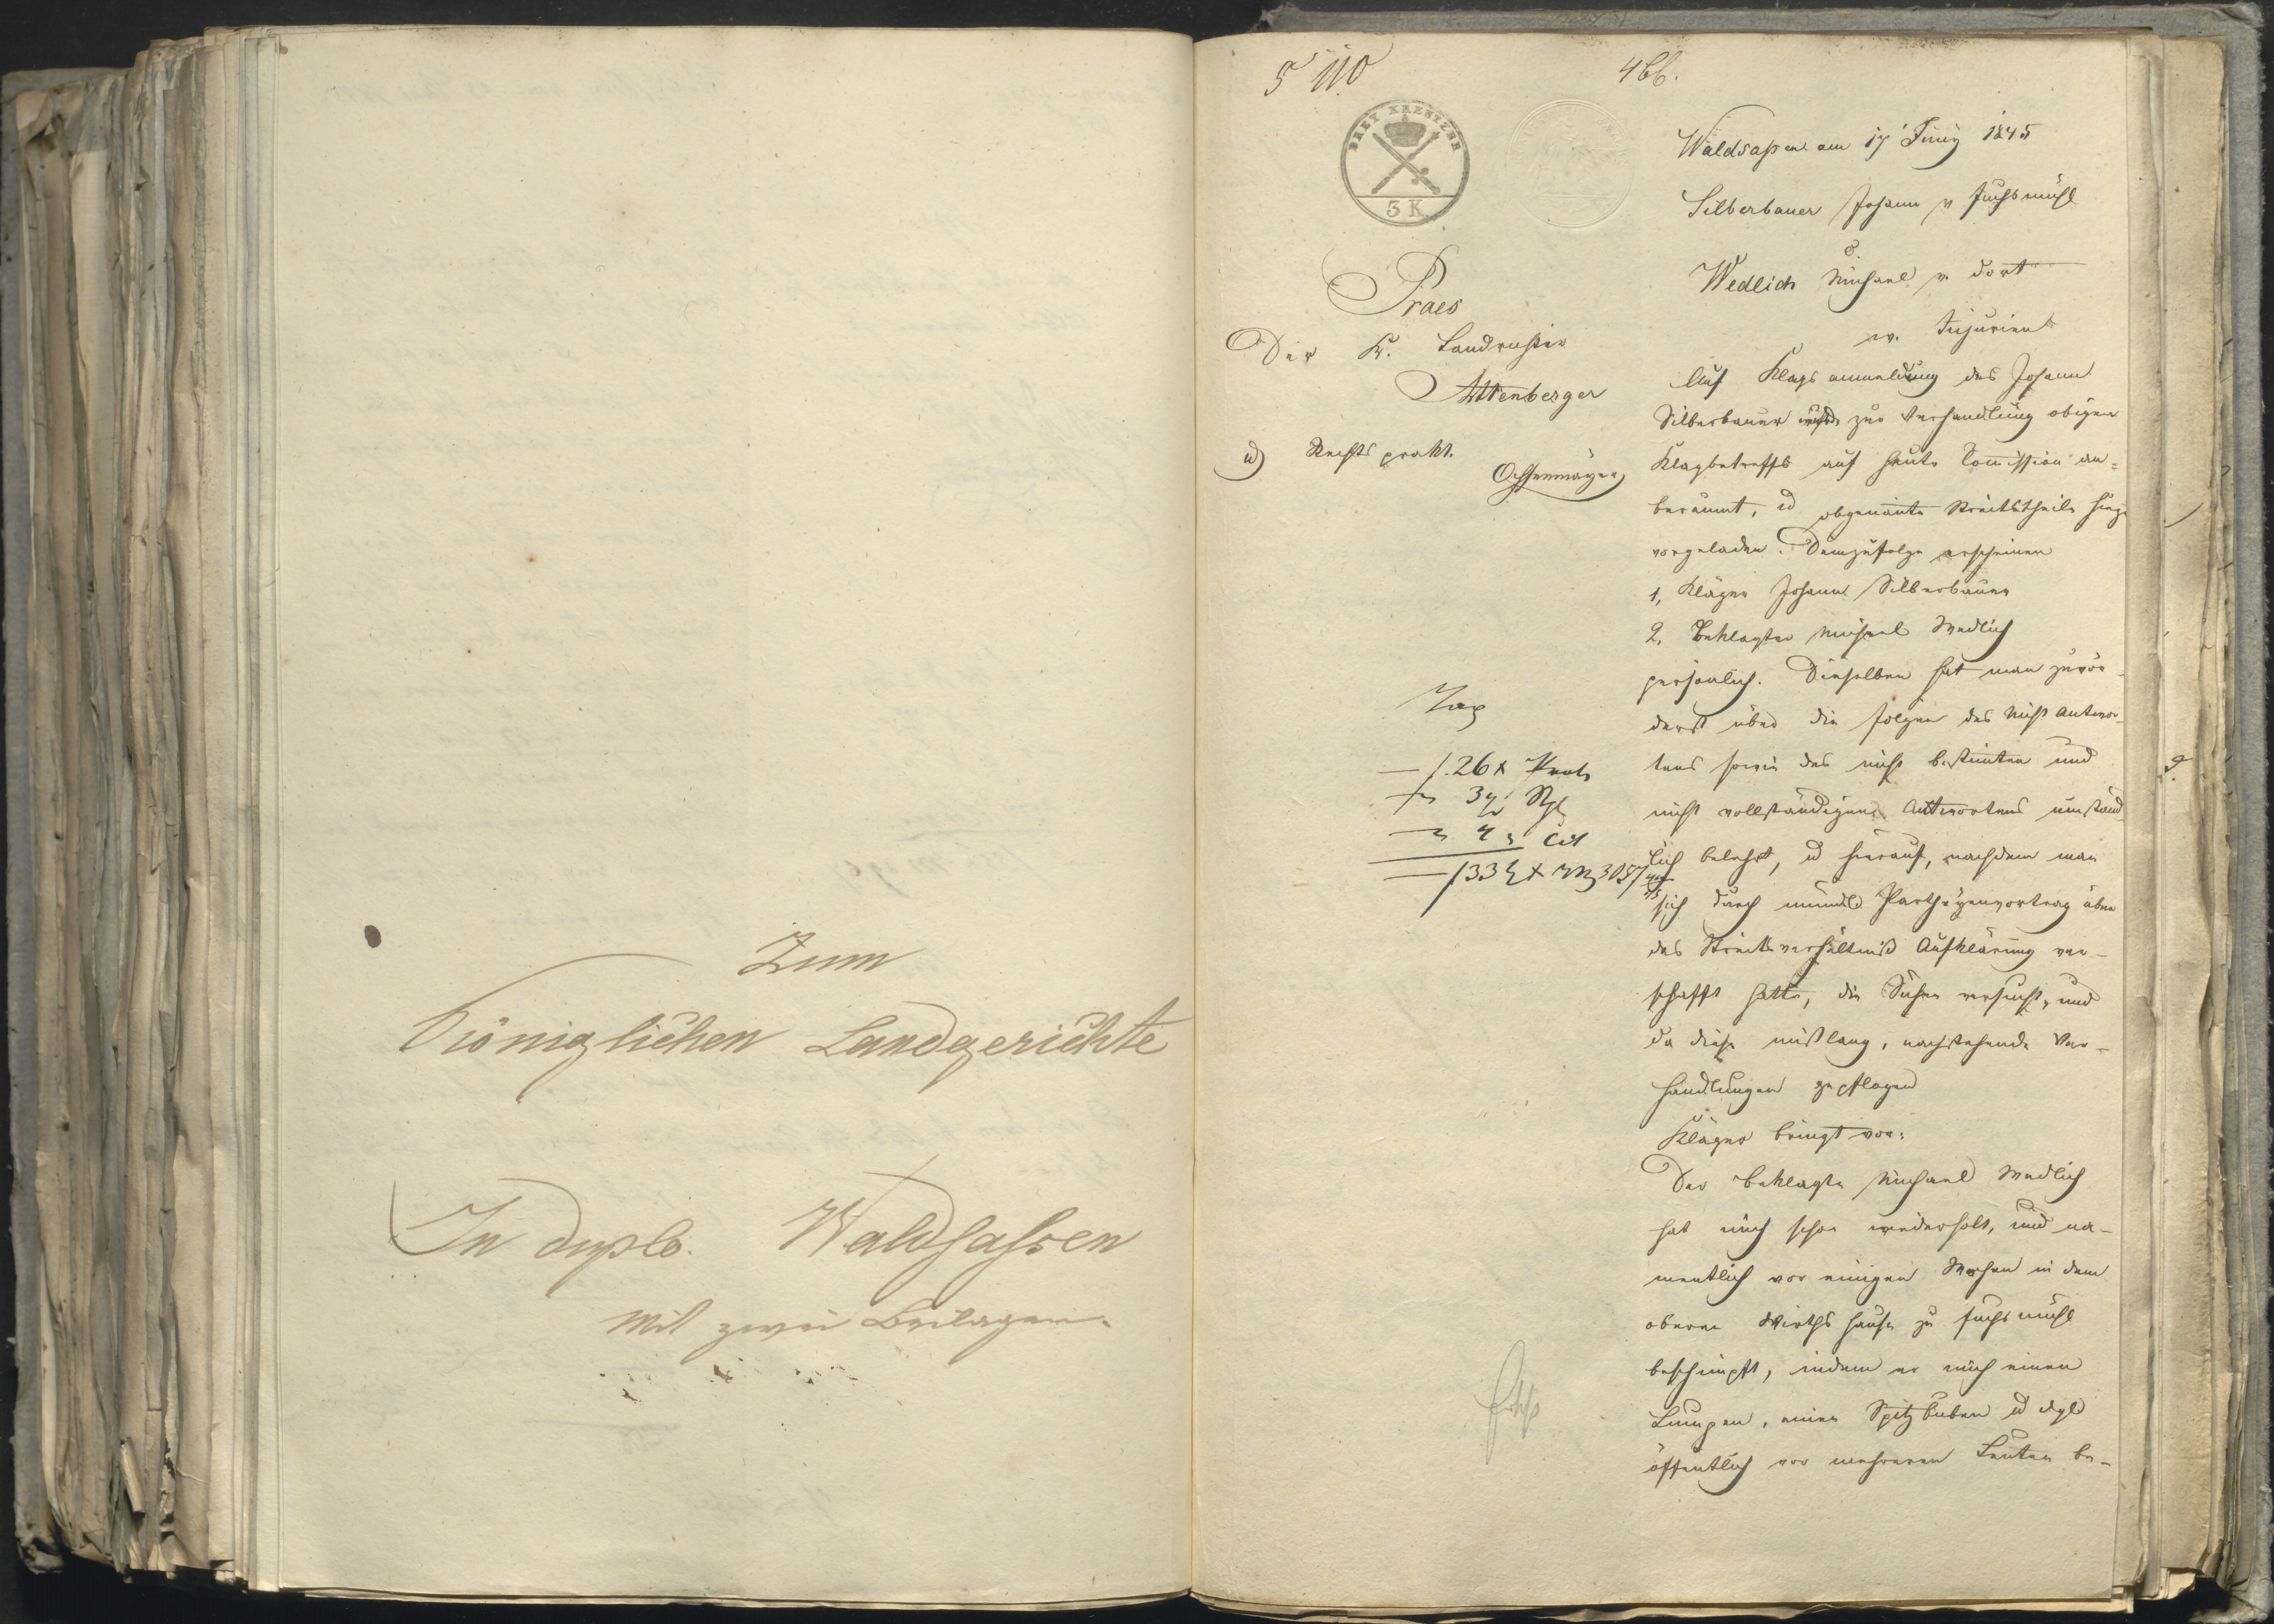 Zum
Königlichen Landgerichte
In duplo. Waldsassen
Mit zwei Beilagen.
5 110
466.
DREY KREUZER
3 K
Praes
Der K. Landrichter
Attenberger
u Rechts prakt.
Ochsenmayer
Tax
26 x Prot
3
4
Waldsassen am 17 Juny 1845
Silberbauer Johann v Fuchsmühl
c.
Wedlich Michael v dort
w. Injurien
Auf Klags anmeldung des Johann
Silberbauer wurde zur Verhandlung obigen
Klagbetreffs auf heute Commission an=
beraumt, u obgenannte Streitstheile hiezu
vorgeladen. Demzufolge erscheinen
1, Kläger Johann Silberbauer
2, Beklagter Michael Wedlich
persönlich. Dieselben hat man zuvör
derst über die Folgen des nicht Antwor-
tens sowie des nicht bestimmten und
nicht vollständigen Antwortens umständ
lich belehrt, u hierauf, nachdem man
sich durch mündl Partheyenvortrag über
das Streitsverhältniß Aufklärung ver-
schafft hatte, die Sühne versucht, und
da diese mißlang, nachstehende Ver-
handlungen gepflogen
Kläger bringt vor:
Der Beklagte Michael Wedlich
hat mich schon wiederholt, und na-
mentlich vor einigen Wochen in dem
oberen Wirthshause zu Fuchsmühl
beschimpft, indem er mich einen
Lumpen, einen Spitzbuben u dgl
öffentlich vor mehreren Leuten be-